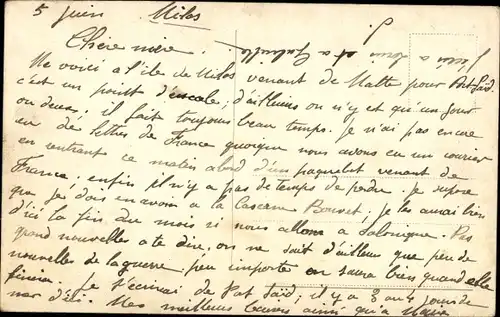 5 juin Milos
Chère mère.
J'écris a Louis et a Gabrielle.
Me voici a l'île de Milos venant de Malte pour Port-Saïd.
c'est un point d'escale, d'ailleurs on n'y est qu'un jour
ou deux, il fait toujours beau temps. Je n'ai pas encore
eu de lettres de France quoique nous avons eu un courrier
en rentrant ce matin abord d'un paquebot venant de
France, enfin il n'y a pas de temps de perdu. Je suppose
que je dois en avoir a la caserne je les aurai bien
d'ici la fin du mois si nous allons a Salonique. Pas
grand nouvelles a te dire, on ne sait d'ailleurs que peu de
nouvelles de la guerre, peu importe on saura bien quand elle
finira. Je t'écrirai de Port Saïd, il y a 3 ou 4 jours de
mer d'ici. Mes meilleurs baisers ainsi qu'a